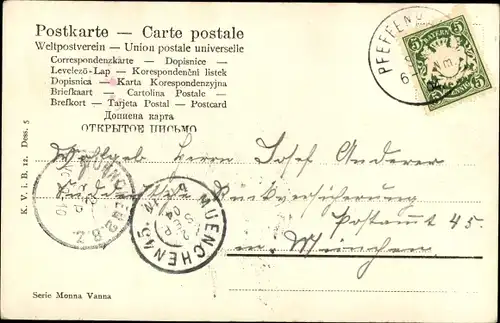 Postkarte — Carte postale
Weltpostverein — Union postale universelle
Correspondenzkarte — Dopisnice —
Levelező-Lap — Korespondenční listek
Dopisnica — Karta Korespondenzyjna
Briefkaart — Cartolina Postale —
Brefkort — Tarjeta Postal — Postcard
Дописна карта
ОТКРЫТОЕ ПИСЬМО
PFEFFEN
5 BAYERN 5
K. V. i. B. 12. Dess. 5
Wohlgeb Herrn Josef Anderer
Rückversicherung
Postamt 45.
in München.
MUENCHEN 2 B.Z.
MUENCHEN 45
2
SEP
04
Serie Monna Vanna